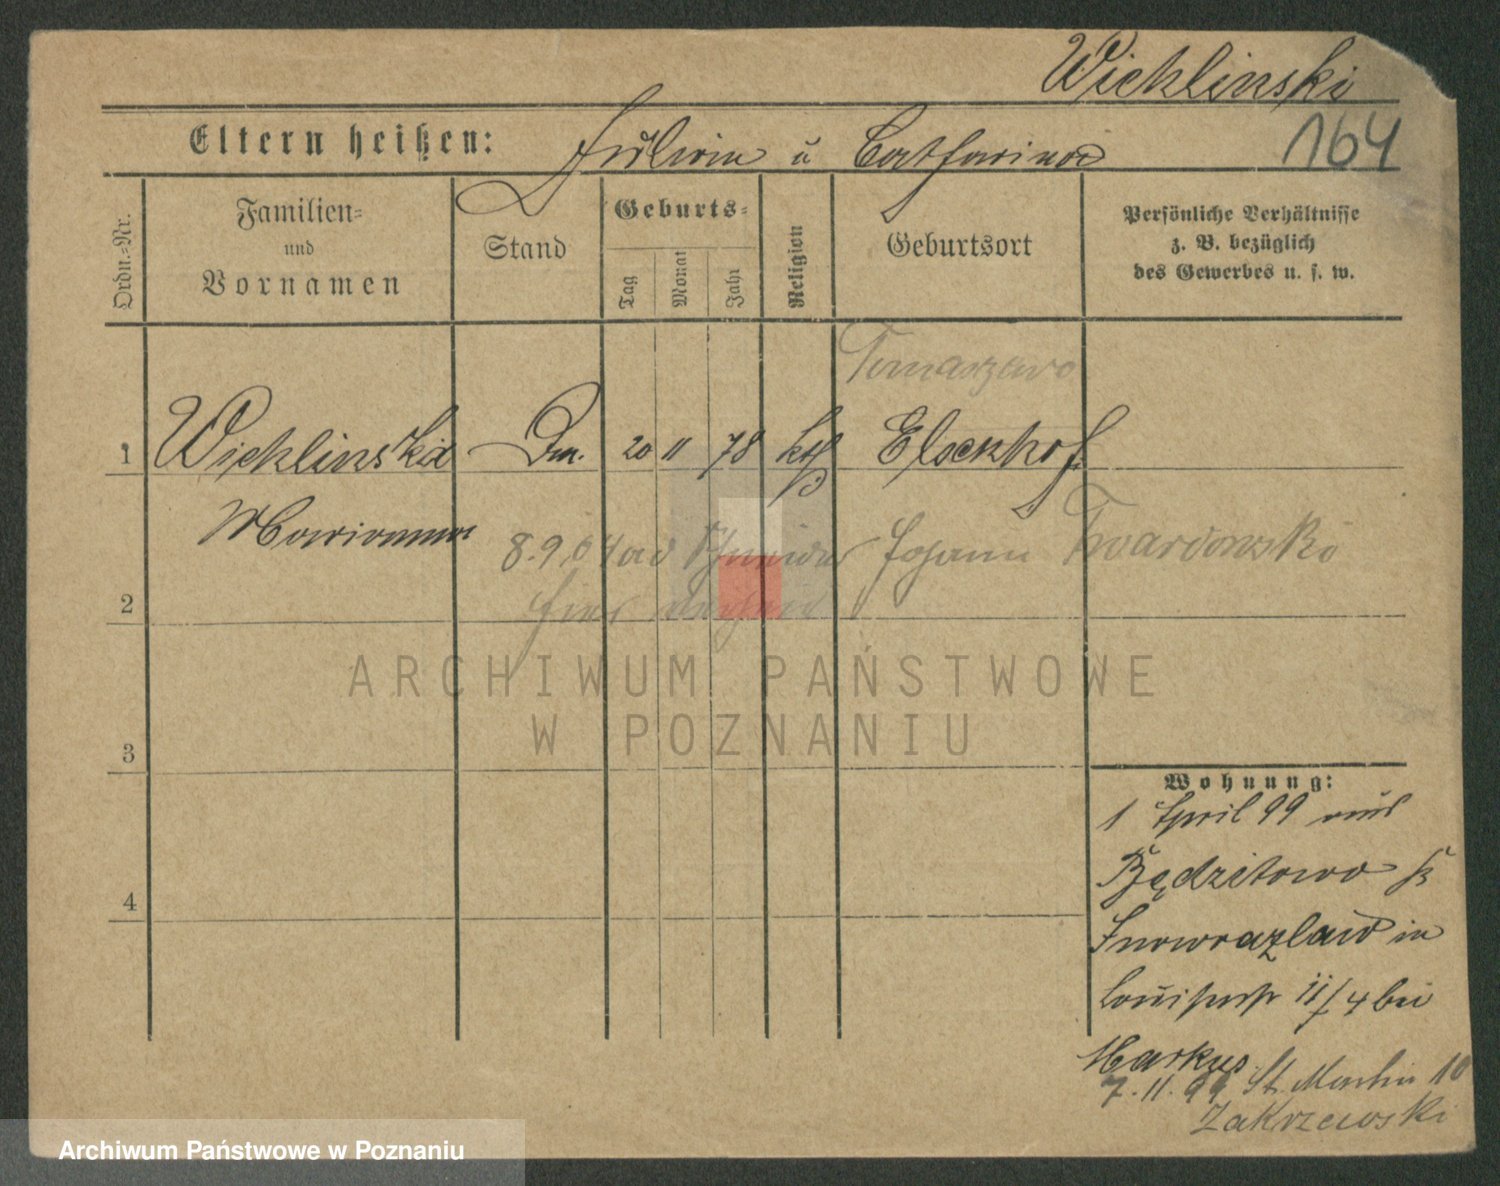 Wichlinski
164
Eltern heißen: Julian u Catharina
Ordn.-Nr.
Familien-
und
Vornamen
Stand
Geburts-
Tag
Monat
Jahr
Religion
Geburtsort
Persönliche Verhältnisse
z. B. bezüglich
des Gewerbes u. s. w.
Tomaszewo
1 Wichlinska 20 11 78 kth
Marianna
8.9.04 Schneider Johann Twardowski
hier
2
ARCHIWUM PAŃSTWOWE
W POZNANIU
3
Wohnung:
1 April 99 aus
Będzitowo
Inowrazlaw in
Louisenstr 11/4 bei
Markus
7.11.99 St. Martin 10
Zakrzewski
4
Archiwum Państwowe w Poznaniu